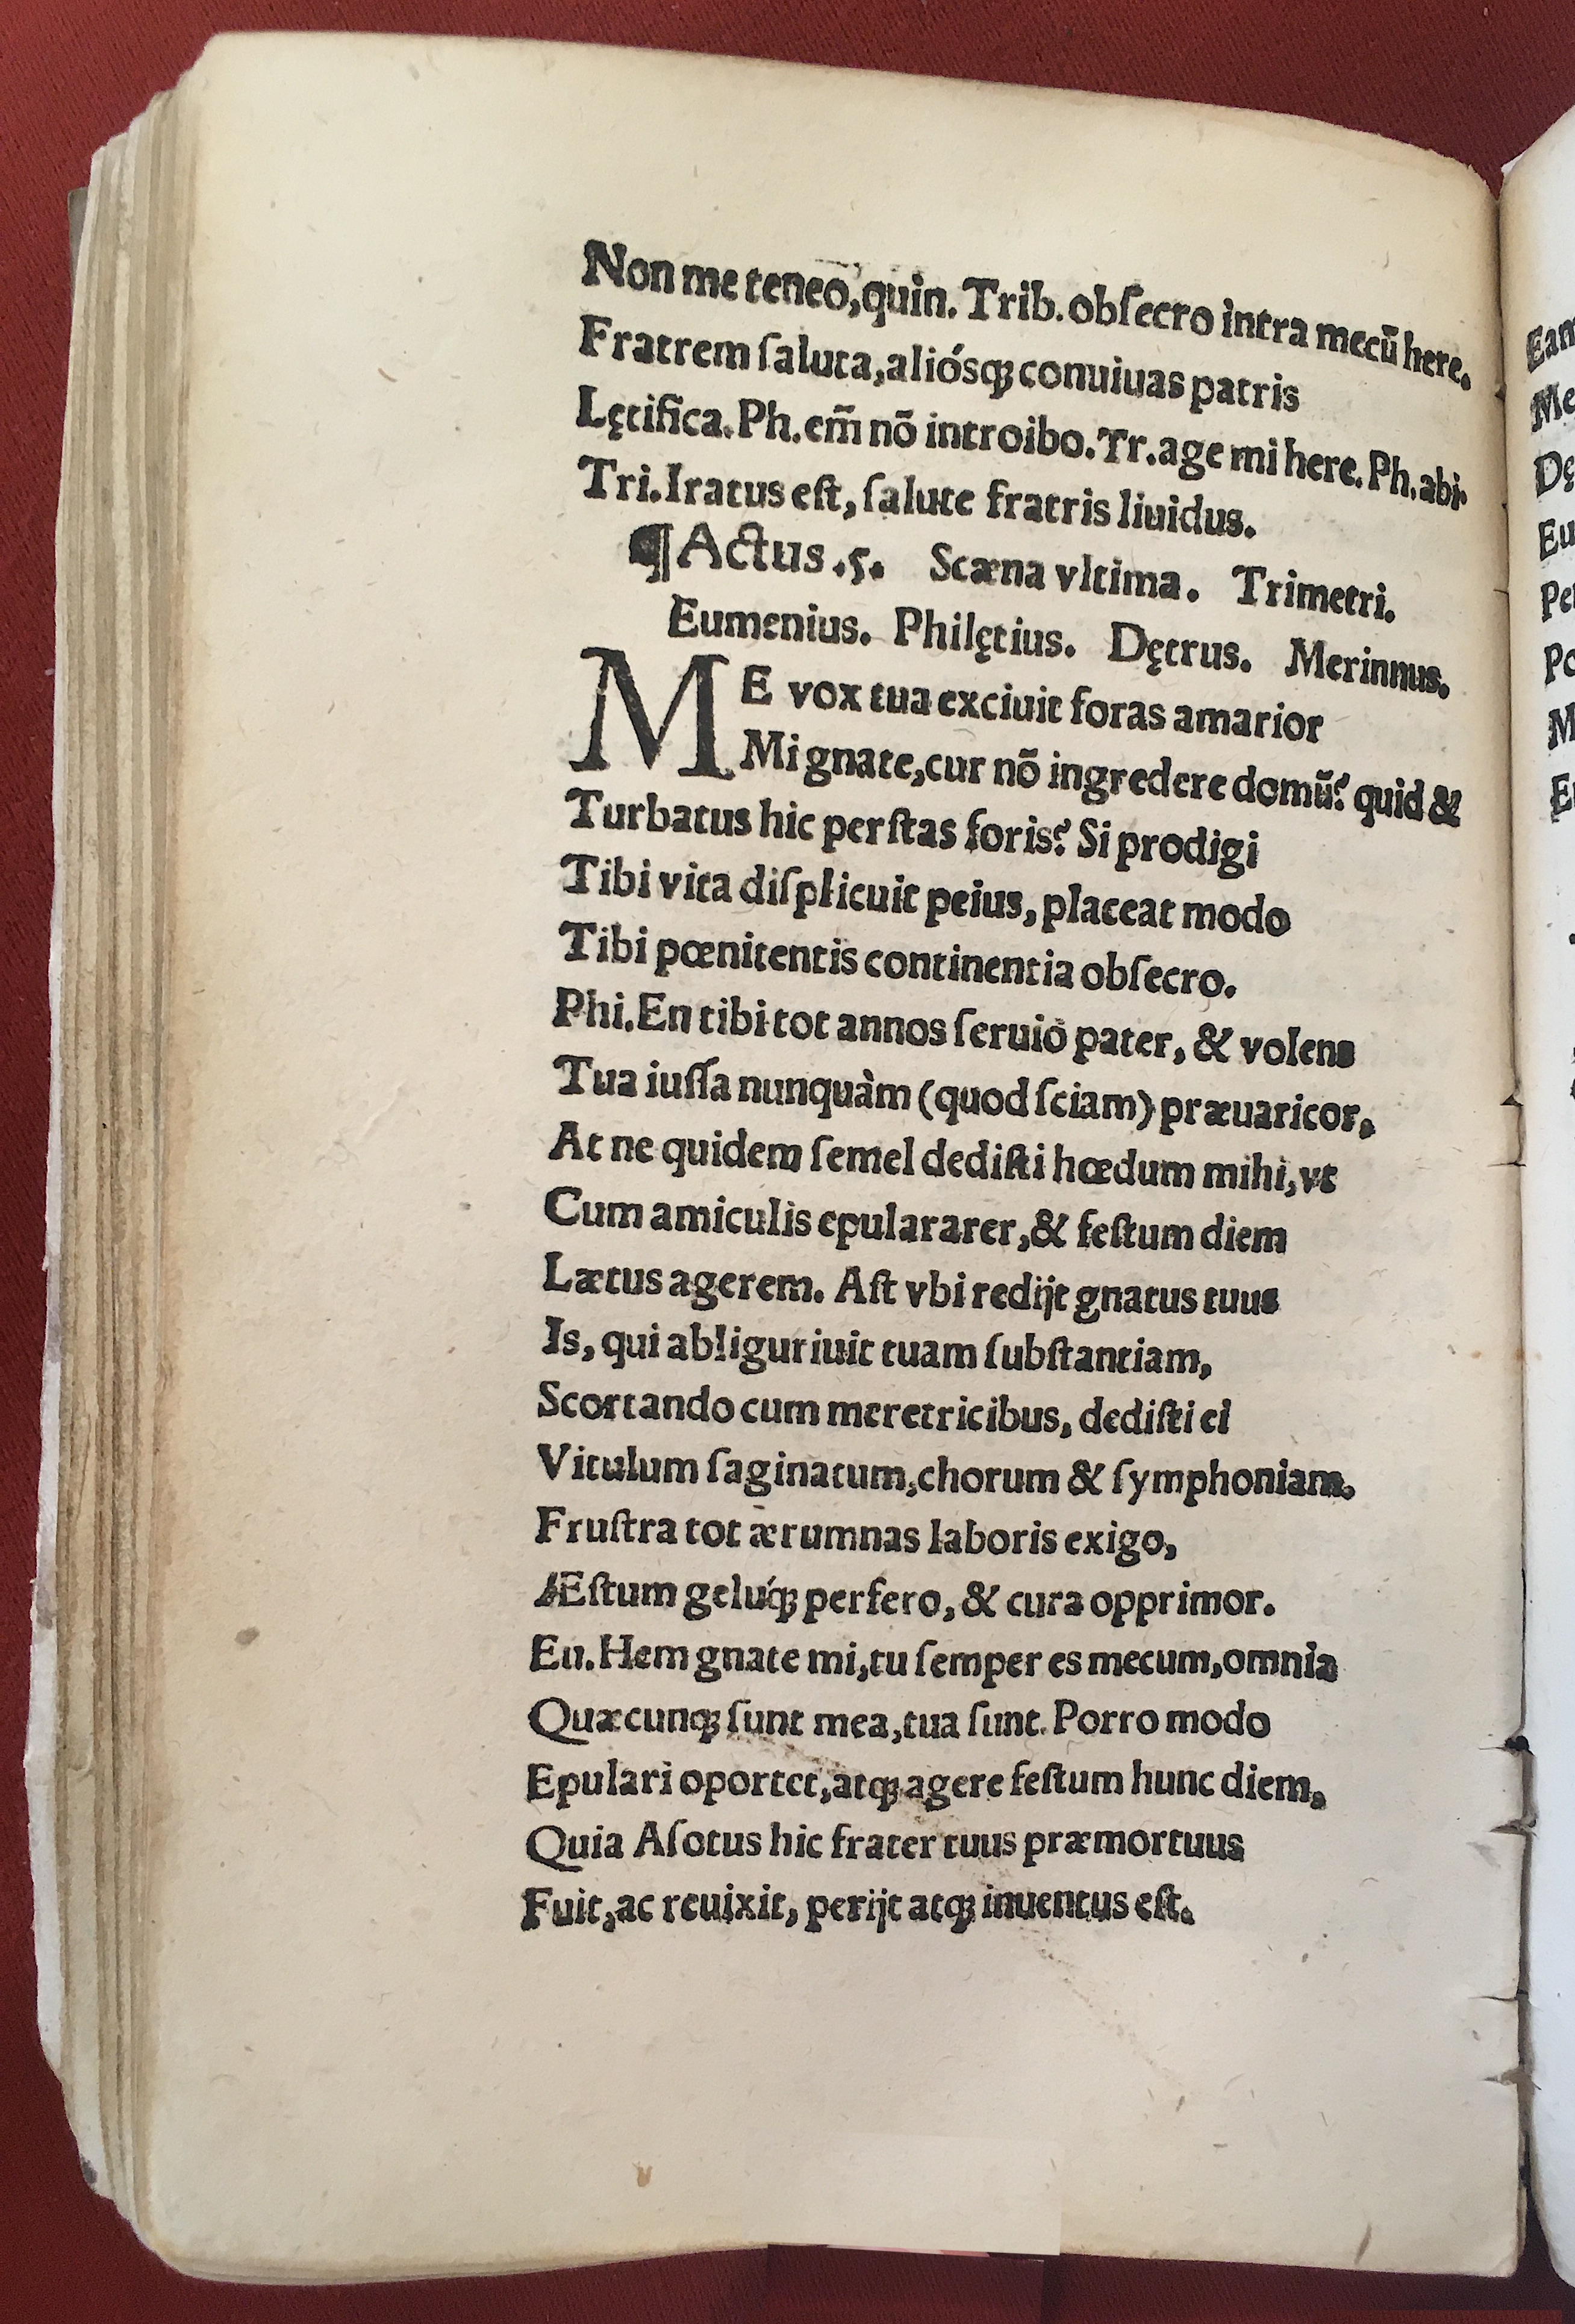 Non me teneo, quin. Trib. obſecro intra mecū here.
Fratrem ſaluta, aliósqꝫ conuiuas patris
Lętifica. Ph. em̃ nõ introibo. Tr. age mi here. Ph. abi.
Tri. Iratus eſt, ſalute fratris liuidus.
¶ Actus .5. Scæna vltima. Trimetri.
Eumenius. Philętius. Dętrus. Merinnus.
ME vox tua exciuit foras amarior
Mi gnate, cur nõ ingredere domū? quid &
Turbatus hic perſtas foris? Si prodigi
Tibi vita diſplicuit peius, placeat modo
Tibi pœnitentis continentia obſecro.
Phi. En tibi tot annos ſeruio pater, & volens
Tua iuſſa nunquàm (quod ſciam) præuaricor,
At ne quidem ſemel dediſti hœdum mihi, vt
Cum amiculis epulararer, & feſtum diem
Lætus agerem. Aſt vbi redijt gnatus tuus
Is, qui abliguriuit tuam ſubſtantiam,
Scortando cum meretricibus, dediſti ei
Vitulum ſaginatum, chorum & ſymphoniam.
Fruſtra tot ærumnas laboris exigo,
Æſtum gelúqꝫ perfero, & cura opprimor.
Eu. Hem gnate mi, tu ſemper es mecum, omnia
Quæcunqꝫ ſunt mea, tua ſunt. Porro modo
Epulari oportet, atqꝫ agere feſtum hunc diem,
Quia Aſotus hic frater tuus præmortuus
Fuit, ac reuixit, perijt atqꝫ inuentus eſt.
Eam
Me
Dę
Eu
Per
Po
M